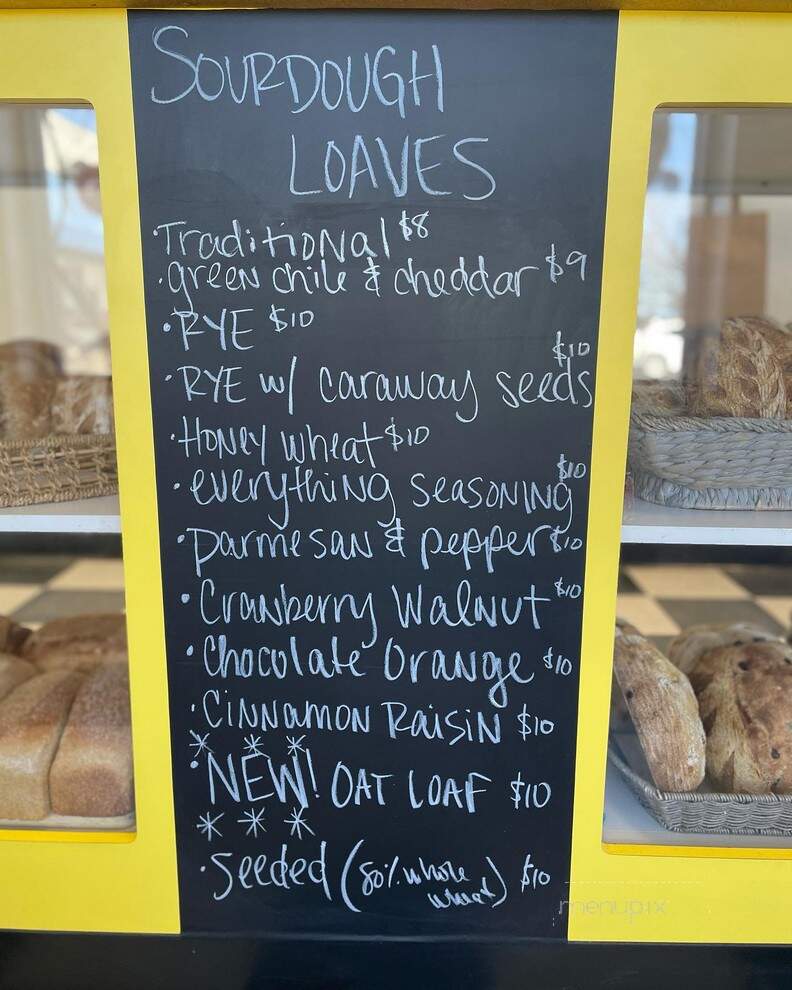 SOURDOUGH
LOAVES
·Traditional $8
·green chile & cheddar $9
·RYE $10
·RYE w/ caraway seeds $10
·Honey wheat $10
·everything seasoning $10
·parmesan & pepper $10
·Cranberry Walnut $10
·Chocolate Orange $10
·Cinnamon Raisin $10
·NEW! OAT LOAF $10
·Seeded (80% whole wheat) $10
menupix